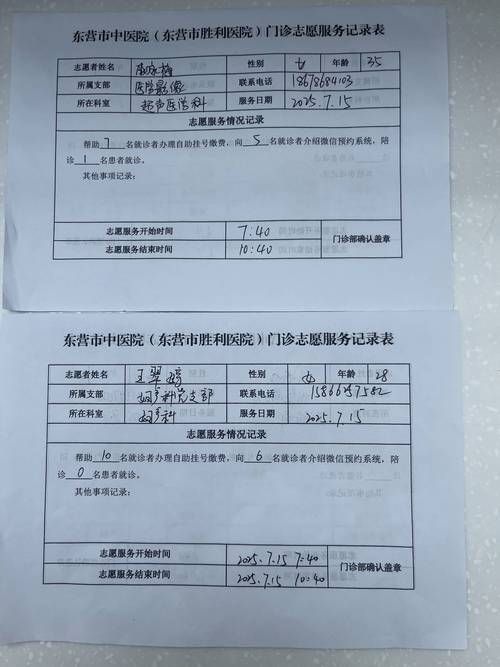 东营市中医院（东营市胜利医院）门诊志愿服务记录表
志愿者姓名 性别 女 年龄 35
所属支部 医学影像 联系电话 18678684103
所在科室 超声医学科 服务日期 2025.7.15
志愿服务情况记录
帮助 7 名就诊者办理自助挂号缴费，向 5 名就诊者介绍微信预约系统，陪
诊 1 名患者就诊。
其他事项记录：
志愿服务开始时间 7:40
门诊部确认盖章
志愿服务结束时间 10:40
东营市中医院（东营市胜利医院）门诊志愿服务记录表
志愿者姓名 王翠 性别 女 年龄 28
所属支部 妇产科党支部 联系电话
所在科室 妇产科 服务日期 2025.7.15
志愿服务情况记录
帮助 10 名就诊者办理自助挂号缴费，向 6 名就诊者介绍微信预约系统，陪
诊 0 名患者就诊。
其他事项记录：
志愿服务开始时间 2025.7.15 7:40
门诊部确认盖章
志愿服务结束时间 2025.7.15 10:40